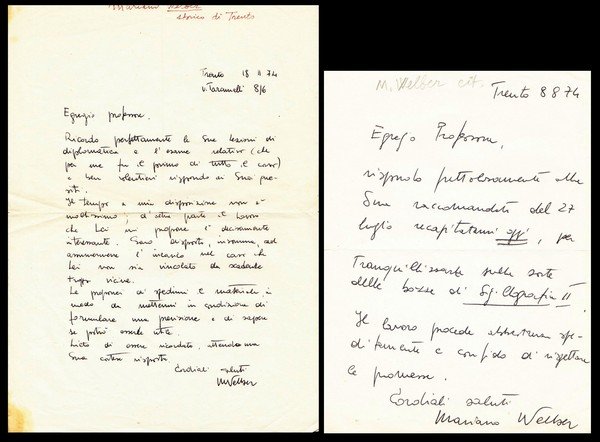 Mariano Welber
storico di Trento
Trento 18 II 74
v. Taramelli 8/6
Egregio professore,
Ricordo perfettamente le Sue lezioni di
diplomatica e l'esame relativo (che
per me fu il primo di tutto il corso)
e ben volentieri rispondo ai Suoi que-
siti.
Il tempo a mia disposizione non è
moltissimo; d'altra parte il lavoro
che Lei mi propone è decisamente
interessante. Sarei disposto, insomma, ad
assumermene l'incarico nel caso che
Lei non sia vincolato da scadenze
troppo vicine.
Le proporrei di spedirmi il materiale in
modo da mettermi in condizione di
formulare una previsione e di sapere
se potrò esserle utile.
Lieto di essere ricordato, attendo una
Sua cortese risposta.
Cordiali saluti
MWelber
M. Welber cit.
Trento 8 8 74
Egregio Professore,
rispondo frettolosamente alla
Sua raccomandata del 27
luglio recapitatami oggi, per
tranquillizzarla sulla sorte
delle bozze di Sigillografia II
Il lavoro procede abbastanza spe-
ditamente e confido di rispettare
le promesse.
Cordiali saluti
Mariano Welber